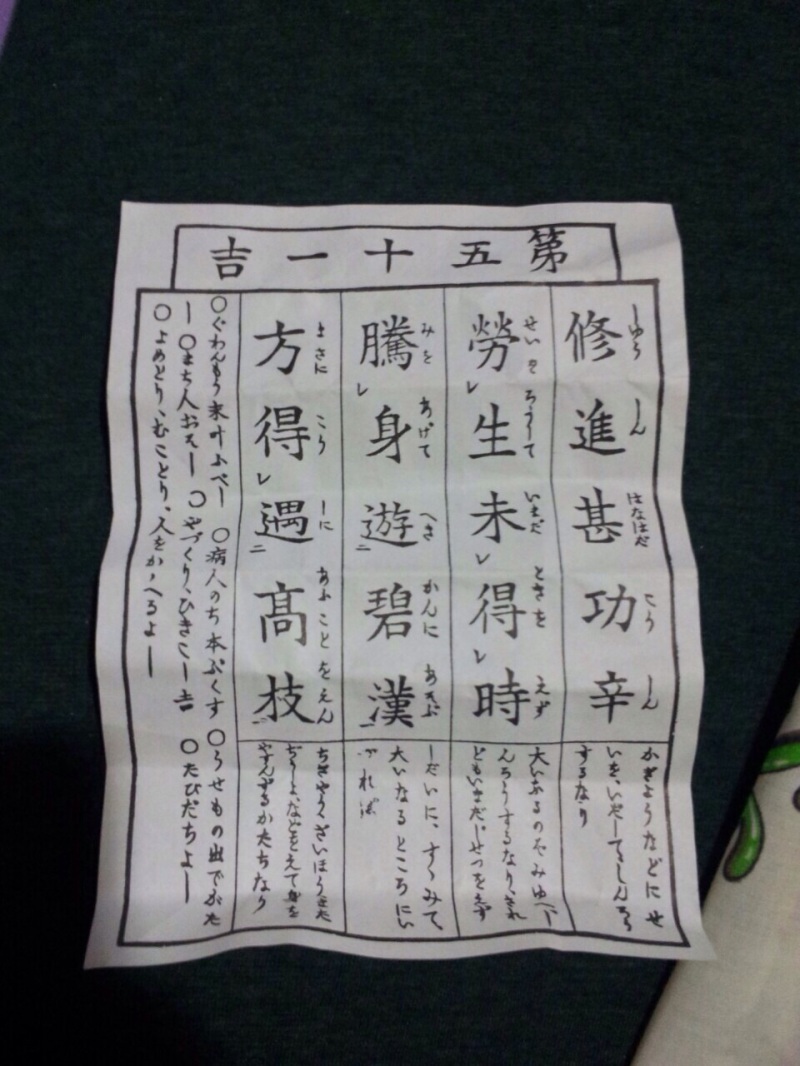 第五十一吉
修進甚功辛
しゆう しん はなはだ こう しん
かぎようなどにせ
いを、いだしてしんろう
するなり
勞生未得時
せいを ろうして いまだ ときを えず
大いなるのぞみゆへし
んろうするなり、され
どもいまだじせつをえず
騰身遊碧漢
みを あげて へき かんに あそぶ
しだいに、すゝみて
大いなるところにい
れば
方得遇髙技
まさに こう しに あふ ことを えん
ちぎやう、ざいほうまた
ぢうしよ、などをえて身を
やすんずるかたちなり
○ぐわんもう叶ふべし ○病人のち本ぷくす ○うせもの出でがた
し ○まち人おそし ○やづくり、ひきこし吉 ○たびだちよし
○よめとり、むことり、人をかゝへるよし